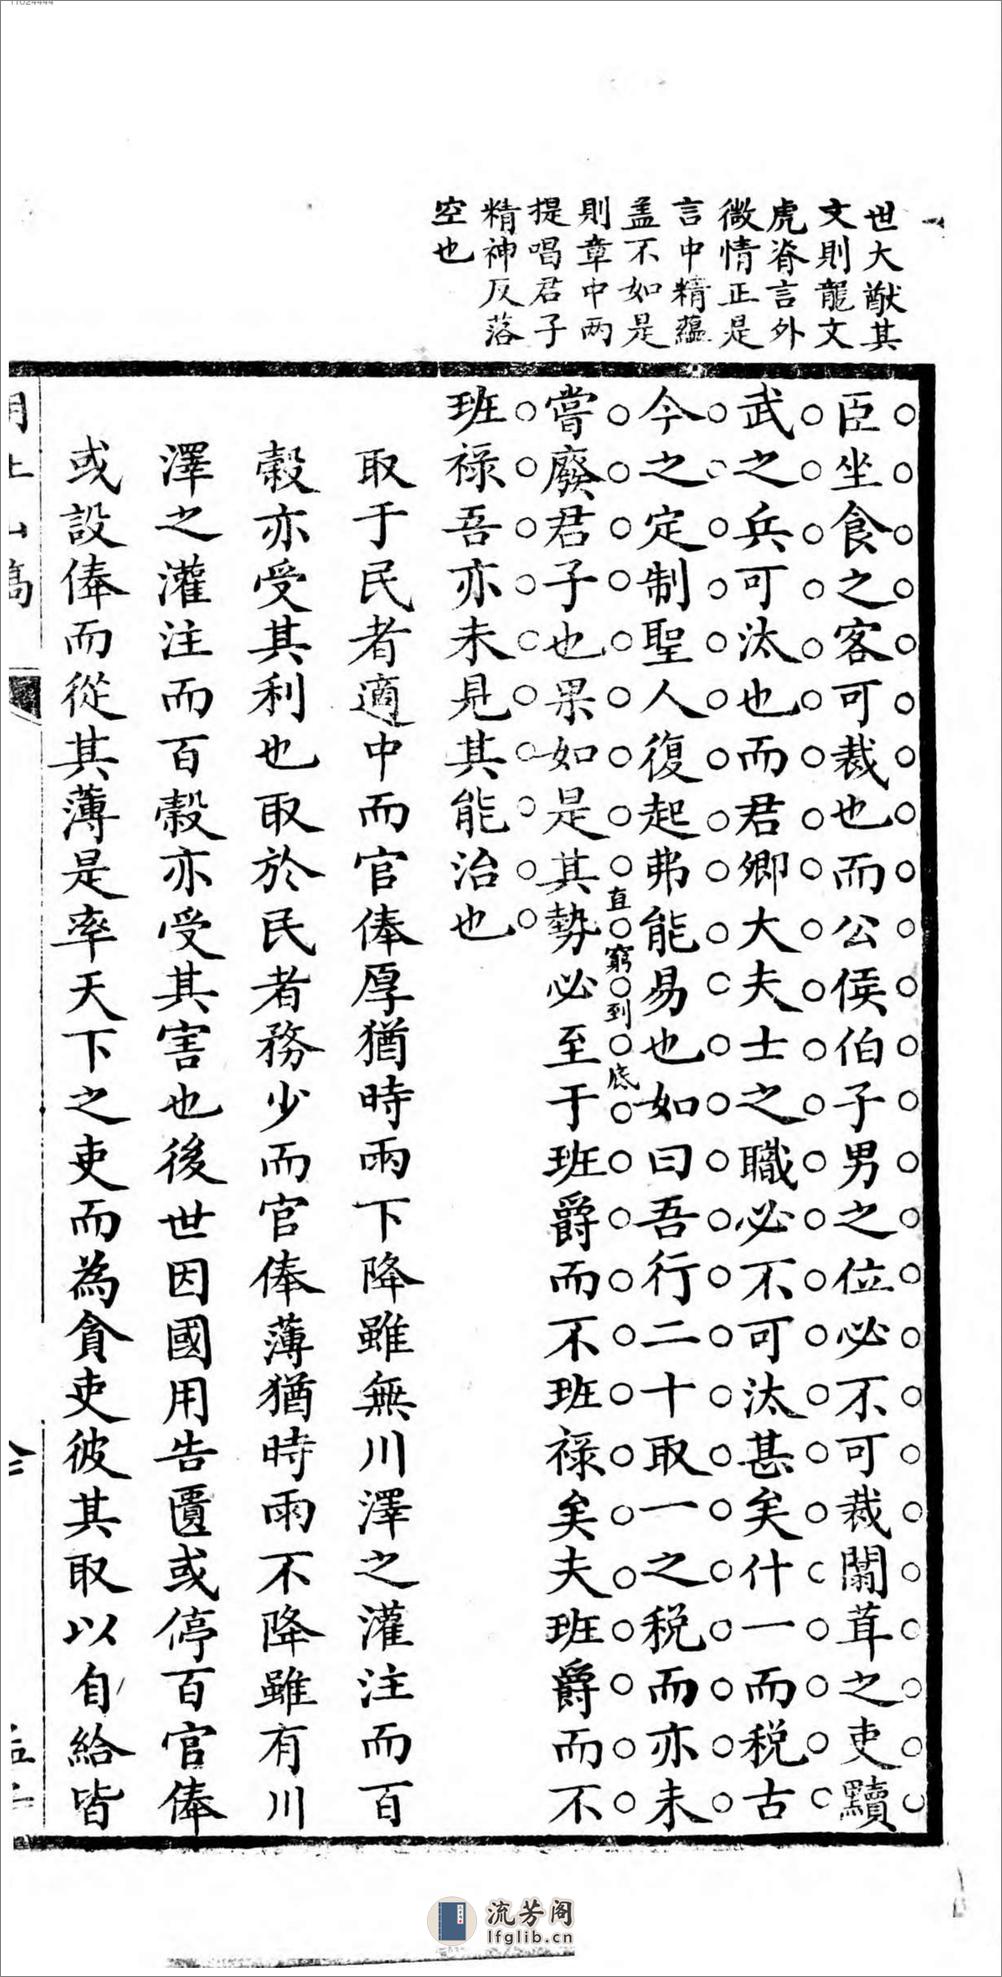 11024444
世大猷其
文則龍文
虎脊言外
微情正是
言中精蘊
盖不如是
則章中两
提唱君子
精神反落
空也
臣坐食之客可裁也而公侯伯子男之位必不可裁闒茸之吏黷
武之兵可汰也而君卿大夫士之職必不可汰甚矣什一而税古
今之定制聖人復起弗能易也如曰吾行二十取一之税而亦未
直窮到底
嘗廢君子也果如是其勢必至于班爵而不班禄矣夫班爵而不
班禄吾亦未見其能治也
取于民者適中而官俸厚猶時雨下降雖無川澤之灌注而百
穀亦受其利也取於民者務少而官俸薄猶時雨不降雖有川
澤之灌注而百穀亦受其害也後世因國用告匱或停百官俸
或設俸而從其薄是率天下之吏而為貪吏彼其取以自給皆
流芳阁
lfglib.cn